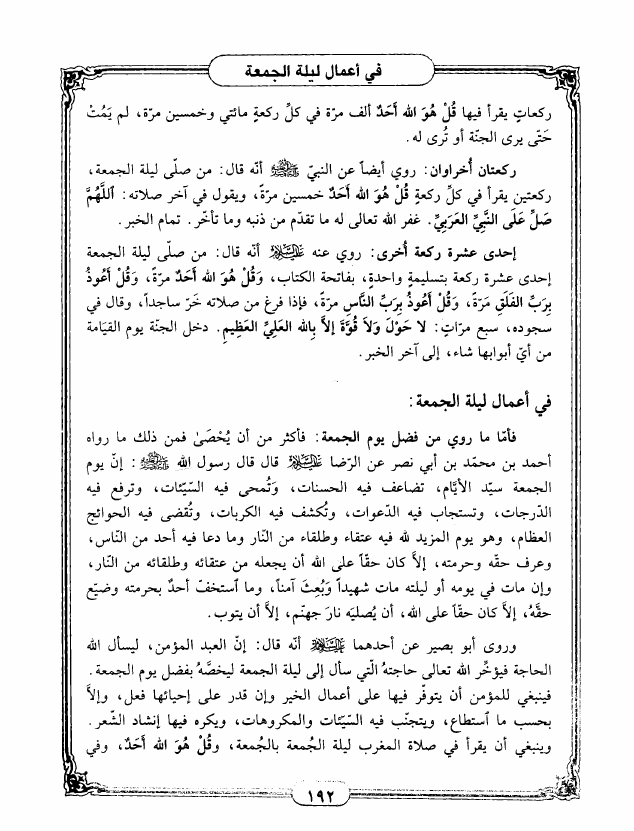 في أعمال ليلة الجمعة
ركعاتٍ يقرأ فيها قُلْ هُوَ الله أَحَدٌ ألف مرّة في كلِّ ركعةٍ مائتي وخمسين مرّة، لم يَمُتْ
حَتّى يرى الجنّة أو تُرى له.
ركعتان أُخراوان: روي أيضاً عن النبيّ ﷺ أنّه قال: من صلّى ليلة الجمعة،
ركعتين يقرأ في كلِّ ركعةٍ قُلْ هُوَ الله أَحَدٌ خمسين مرّةً، ويقول في آخر صلاته: اَللّهُمَّ
صَلِّ عَلَى النَّبِيِّ العَرَبِيِّ. غفر الله تعالى له ما تقدّم من ذنبه وما تأخّر. تمام الخبر.
إحدى عشرة ركعة أُخرى: روي عنه عليه السلام أنّه قال: من صلّى ليلة الجمعة
إحدى عشرة ركعة بتسليمةٍ واحدةٍ، بفاتحة الكتاب، وَقُلْ هُوَ الله أَحَدٌ مرّةً، وَقُلْ أَعُوذُ
بِرَبِّ الفَلَقِ مَرّةً، وَقُلْ أَعُوذُ بِرَبِّ النَّاسِ مرّةً، فإذا فرغ من صلاته خَرّ ساجداً، وقال في
سجوده، سبع مرّاتٍ: لا حَوْلَ وَلاَ قُوَّةَ إلاَّ بِالله العَلِيِّ العَظِيمِ. دخل الجنّة يوم القيامة
من أيّ أبوابها شاء، إلى آخر الخبر.
في أعمال ليلة الجمعة:
فأمّا ما روي من فضل يوم الجمعة: فأكثر من أن يُحْصَىٰ فمن ذلك ما رواه
أحمد بن محمّد بن أبي نصر عن الرّضا عليه السلام قال قال رسول الله ﷺ: إنّ يوم
الجمعة سيّد الأيّام، تضاعف فيه الحسنات، وَتُمحى فيه السّيّئات، وترفع فيه
الدّرجات، وتستجاب فيه الدّعوات، وتُكشف فيه الكربات، وتُقضى فيه الحوائج
العظام، وهو يوم المزيد لله فيه عتقاء وطلقاء من النّار وما دعا فيه أحد من النّاس،
وعرف حقّه وحرمته، إلاَّ كان حقّاً على الله أن يجعله من عتقائه وطلقائه من النّار،
وإن مات في يومه أو ليلته مات شهيداً وَبُعِثَ آمناً، وما ٱستخفّ أحدٌ بحرمته وضيّع
حقَّهُ، إلاَّ كان حقّاً على الله، أن يُصليَه نارَ جهنّم، إلاَّ أن يتوب.
وروى أبو بصير عن أحدهما عليه السلام أنّه قال: إنّ العبد المؤمن، ليسأل الله
الحاجة فيؤخِّر الله تعالى حاجتهُ الّتي سأل إلى ليلة الجمعة ليخصَّهُ بفضل يوم الجمعة.
فينبغي للمؤمن أن يتوفّر فيها على أعمال الخير وإن قدر على إحيائها فعل، وإلاَّ
بحسب ما ٱستطاع، ويتجنّب فيه السّيّئات والمكروهات، ويكره فيها إنشاد الشّعر.
وينبغي أن يقرأ في صلاة المغرب ليلة الجُمعة بالجُمعة، وقُلْ هُوَ الله أَحَدٌ، وفي
١٩٢